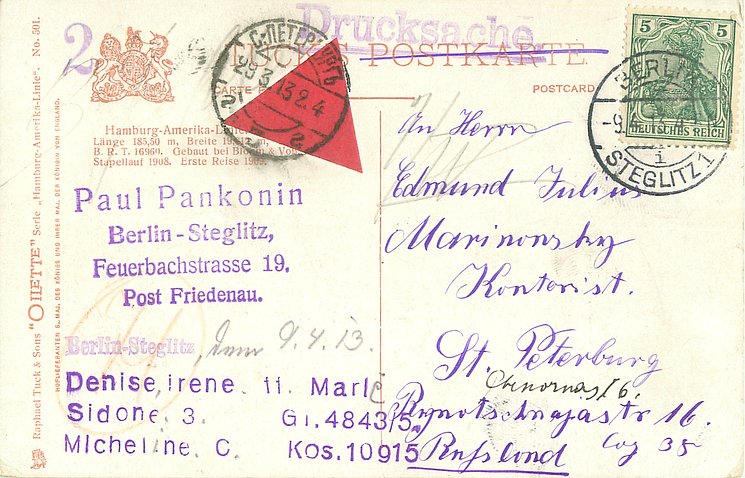 Drucksache
2
TUCK'S POSTKARTE
CARTE POSTCARD
С.ПЕТЕРБУРГЪ
28.3.13.2.4
2 2
5 5
DEUTSCHES REICH
BERLIN
STEGLITZ 1
Hamburg-Amerika-Linie
Länge 185,50 m, Breite
B. R. T. 16960. Gebaut bei Blohm & Voss
Stapellauf 1908. Erste Reise 1909.
Raphael Tuck & Sons "OILETTE" Serie „Hamburg-Amerika-Linie". No. 591.
HOFLIEFERANTEN S. MAJ. DES KÖNIGS UND IHRER MAJ. DER KÖNIGIN VON ENGLAND.
Paul Pankonin
Berlin-Steglitz,
Feuerbachstrasse 19.
Post Friedenau.
Berlin-Steglitz, den 9.4.13.
Denise, irene. 11. Marie
Sidone. 3. Gr. 4843/5
Micheline. C. Kos. 10915
An Herrn
Edmund Julius
Marinonsky
Kontorist.
St. Peterburg
16.
Russland